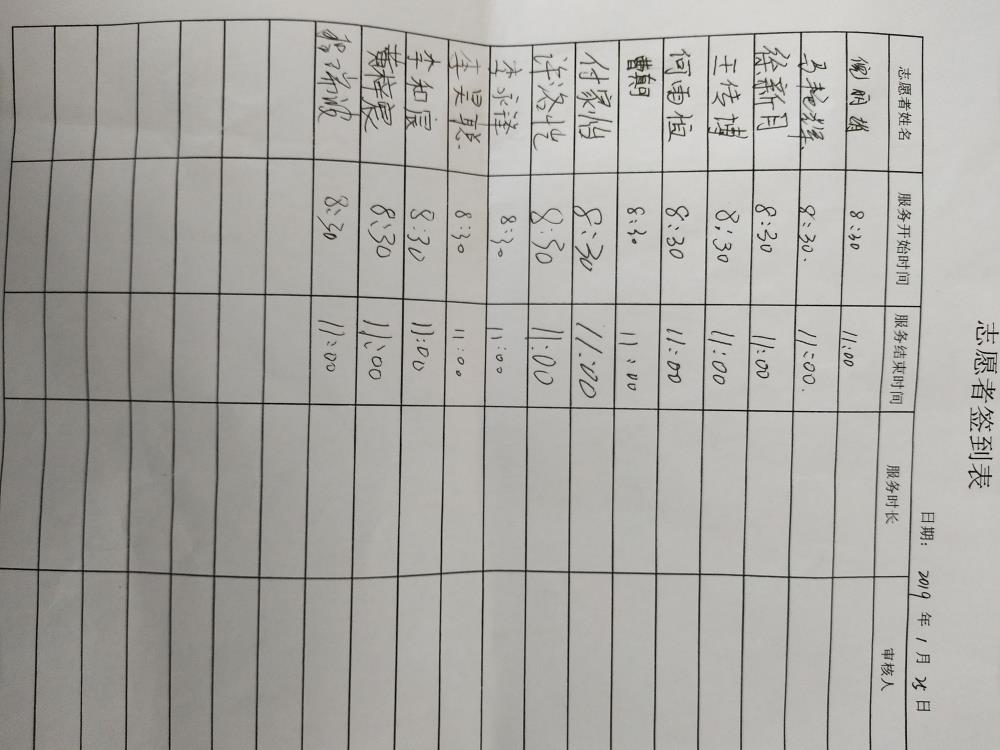 志愿者签到表
日期: 2019 年 1 月 25 日
志愿者姓名 服务开始时间 服务结束时间 服务时长 审核人
8:30 11:00
8:30. 11:00.
徐新月 8:30 11:00
王传博 8:30 11:00
何雨恒 8:30 11:00
曹期 8:30 11:00
付家怡 8:30 11:00
许洛恺 8:30 11:00
李永锋 8:30 11:00
李昊聪 8:30 11:00
李和宸 8:30 11:00
黄梓宸 8:30 11:00
8:30 11:00